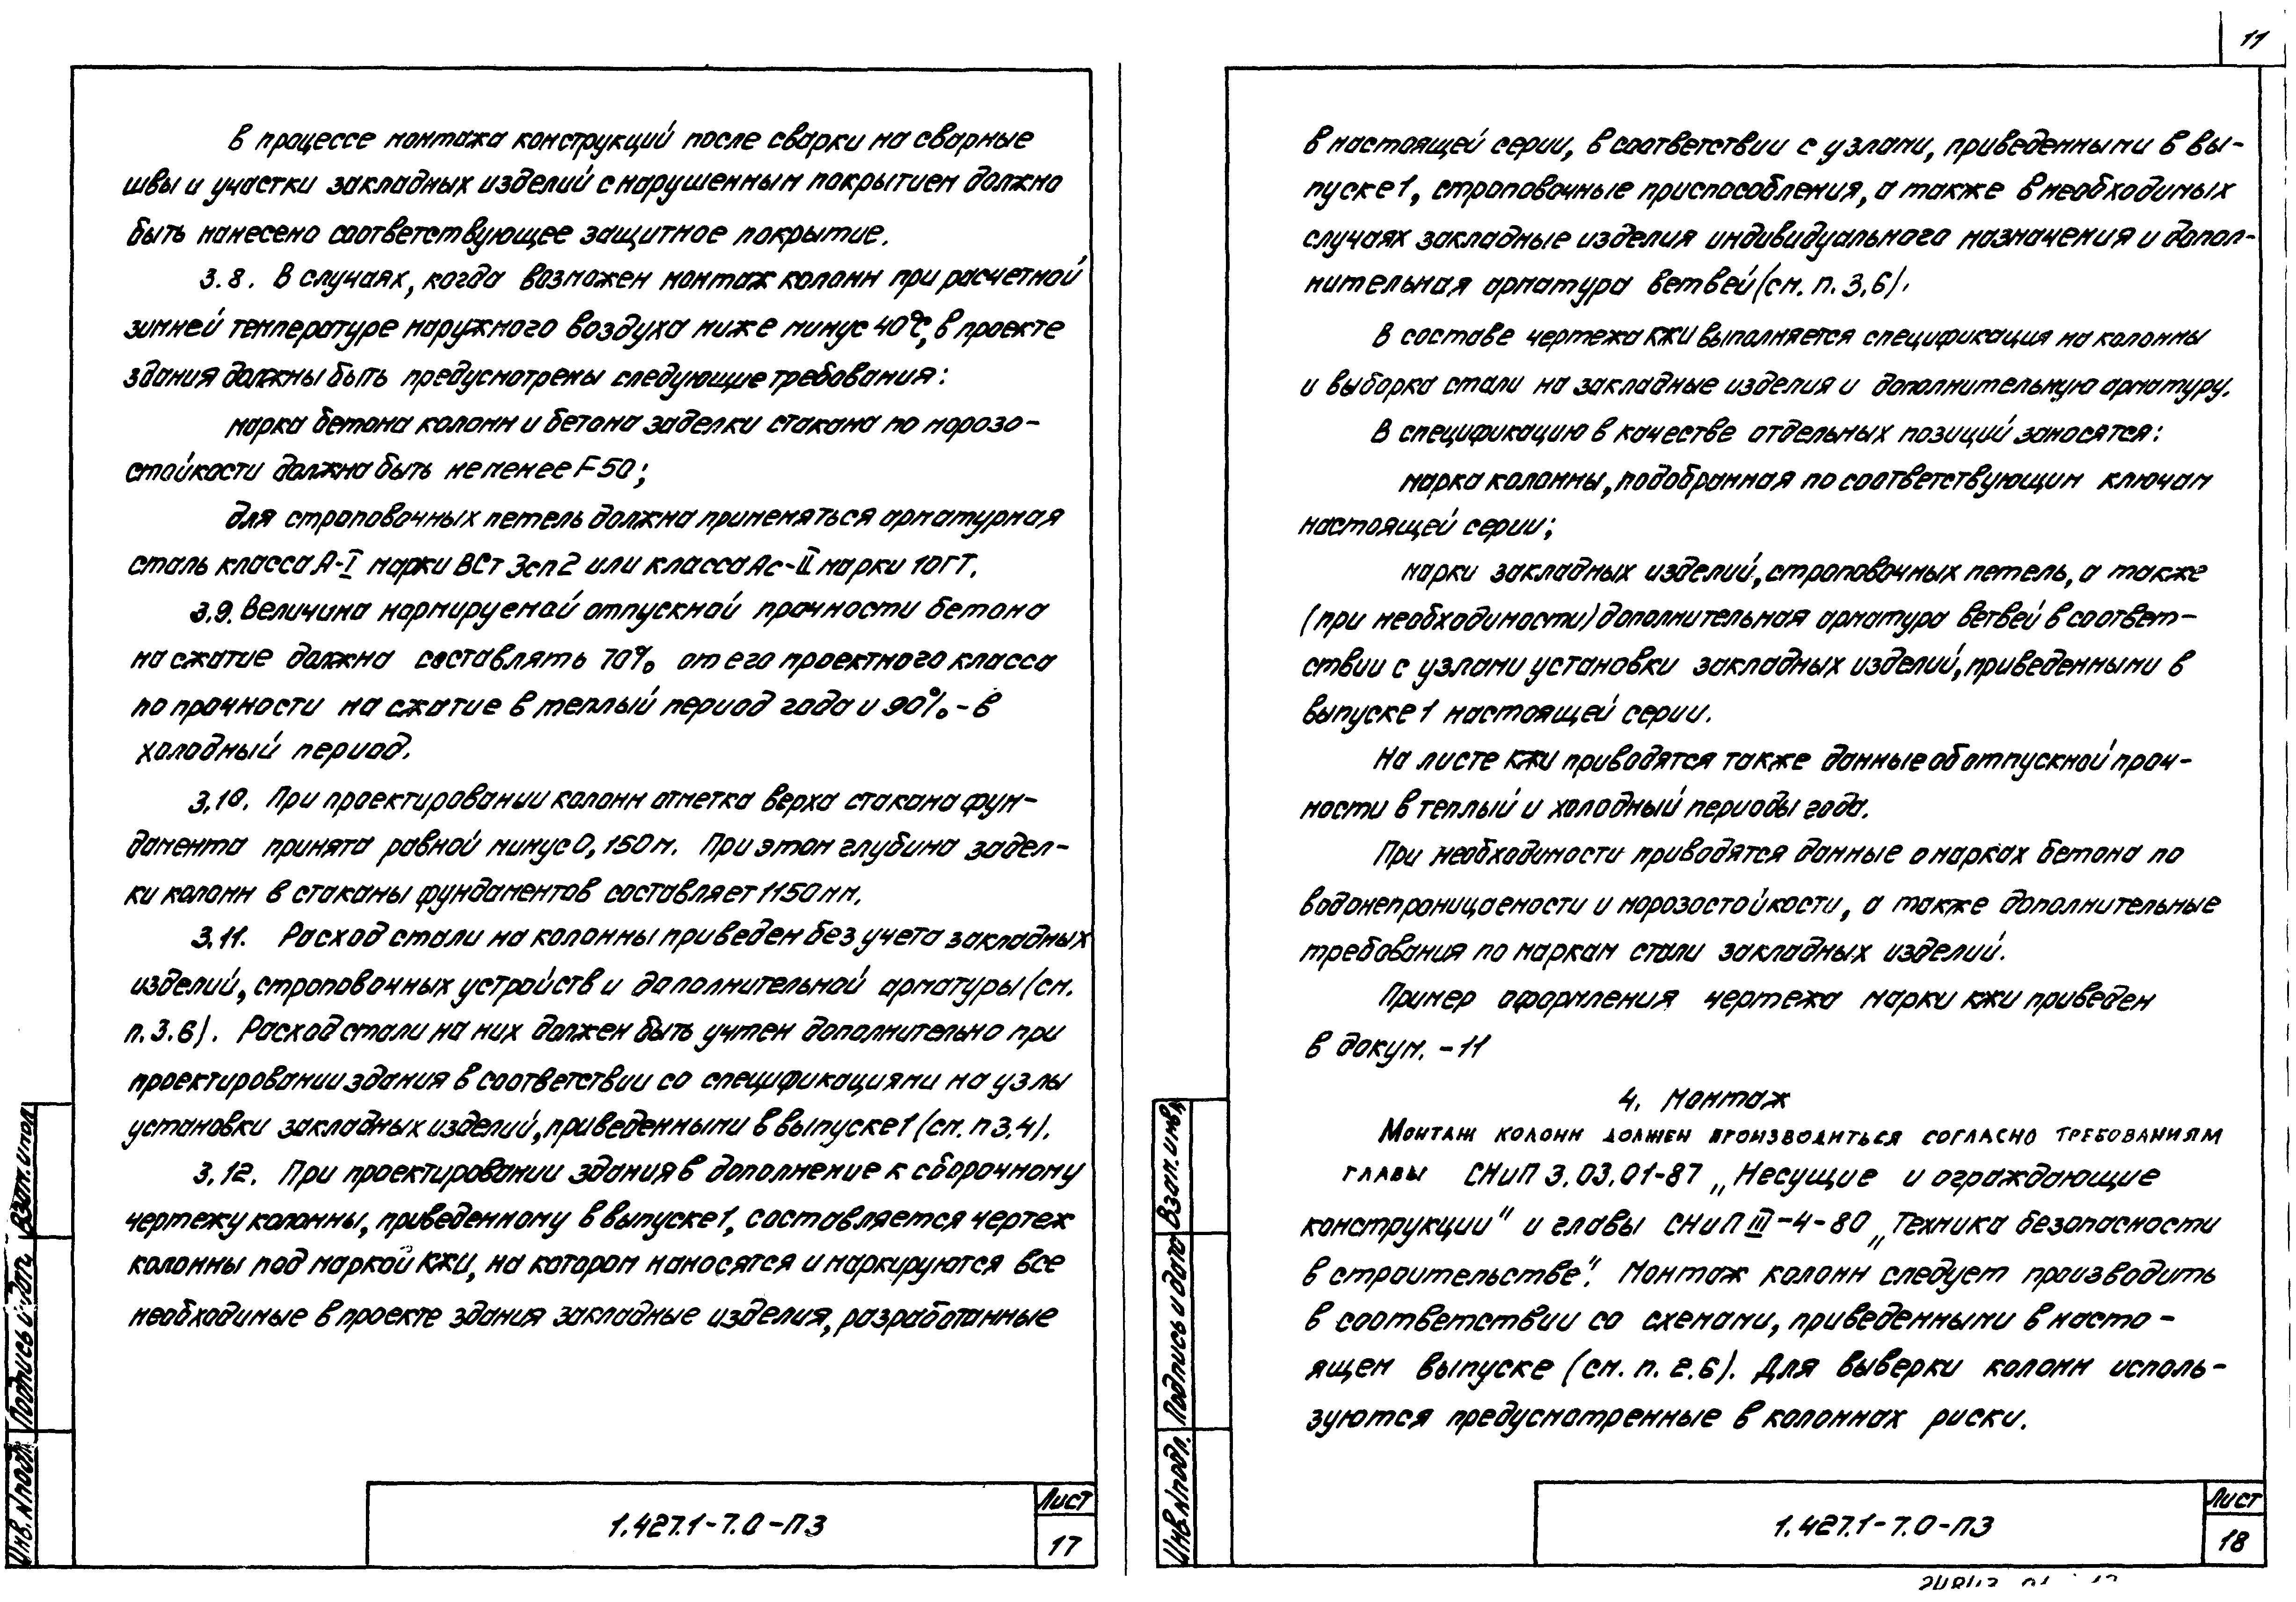 В процессе монтажа конструкций после сварки на сварные
швы и участки закладных изделий с нарушенным покрытием должно
быть нанесено соответствующее защитное покрытие.
3.8. В случаях, когда возможен монтаж колонн при расчетной
зимней температуре наружного воздуха ниже минус 40°С, в проекте
здания должны быть предусмотрены следующие требования:
марка бетона колонн и бетона заделки стакана по морозо-
стойкости должна быть не менее F50;
для строповочных петель должна применяться арматурная
сталь класса А-I марки ВСт3сп2 или класса Ас-II марки 10ГТ.
3.9. Величина нормируемой отпускной прочности бетона
на сжатие должна составлять 70% от его проектного класса
по прочности на сжатие в теплый период года и 90% - в
холодный период.
3.10. При проектировании колонн отметка верха стакана фун-
дамента принята равной минус 0,150м. При этом глубина задел-
ки колонн в стаканы фундаментов составляет 1150мм.
3.11. Расход стали на колонны приведен без учета закладных
изделий, строповочных устройств и дополнительной арматуры (см.
п.3.6). Расход стали на них должен быть учтен дополнительно при
проектировании здания в соответствии со спецификациями на узлы
установки закладных изделий, приведенными в выпуске 1 (см. п 3.4).
3.12. При проектировании здания в дополнение к сборочному
чертежу колонны, приведенному в выпуске 1, составляется чертеж
колонны под маркой КЖИ, на котором наносятся и маркируются все
необходимые в проекте здания закладные изделия, разработанные
Взам.инв.
Подпись и дата
Инв.N подл.
1.427.1-7.0-ПЗ
Лист
17
11
в настоящей серии, в соответствии с узлами, приведенными в вы-
пуске 1, строповочные приспособления, а также в необходимых
случаях закладные изделия индивидуального назначения и допол-
нительная арматура ветвей (см. п. 3.6).
В составе чертежа КЖИ выполняется спецификация на колонны
и выборка стали на закладные изделия и дополнительную арматуру.
В спецификацию в качестве отдельных позиций заносятся:
марка колонны, подобранная по соответствующим ключам
настоящей серии;
марки закладных изделий, строповочных петель, а также
(при необходимости) дополнительная арматура ветвей в соответ-
ствии с узлами установки закладных изделий, приведенными в
выпуске 1 настоящей серии.
На листе КЖИ приводятся также данные об отпускной проч-
ности в теплый и холодный периоды года.
При необходимости приводятся данные о марках бетона по
водонепроницаемости и морозостойкости, а также дополнительные
требования по маркам стали закладных изделий.
Пример оформления чертежа марки КЖИ приведен
в докум. -11
4. Монтаж
Монтаж колонн должен производиться согласно требованиям
главы СНиП 3.03.01-87 „Несущие и ограждающие
конструкции" и главы СНиП III-4-80 „Техника безопасности
в строительстве". Монтаж колонн следует производить
в соответствии со схемами, приведенными в насто-
ящем выпуске (см. п. 2.6). Для выверки колонн исполь-
зуются предусмотренные в колоннах риски.
Взам.инв.
Подпись и дата
Инв.N подл.
1.427.1-7.0-ПЗ
Лист
18